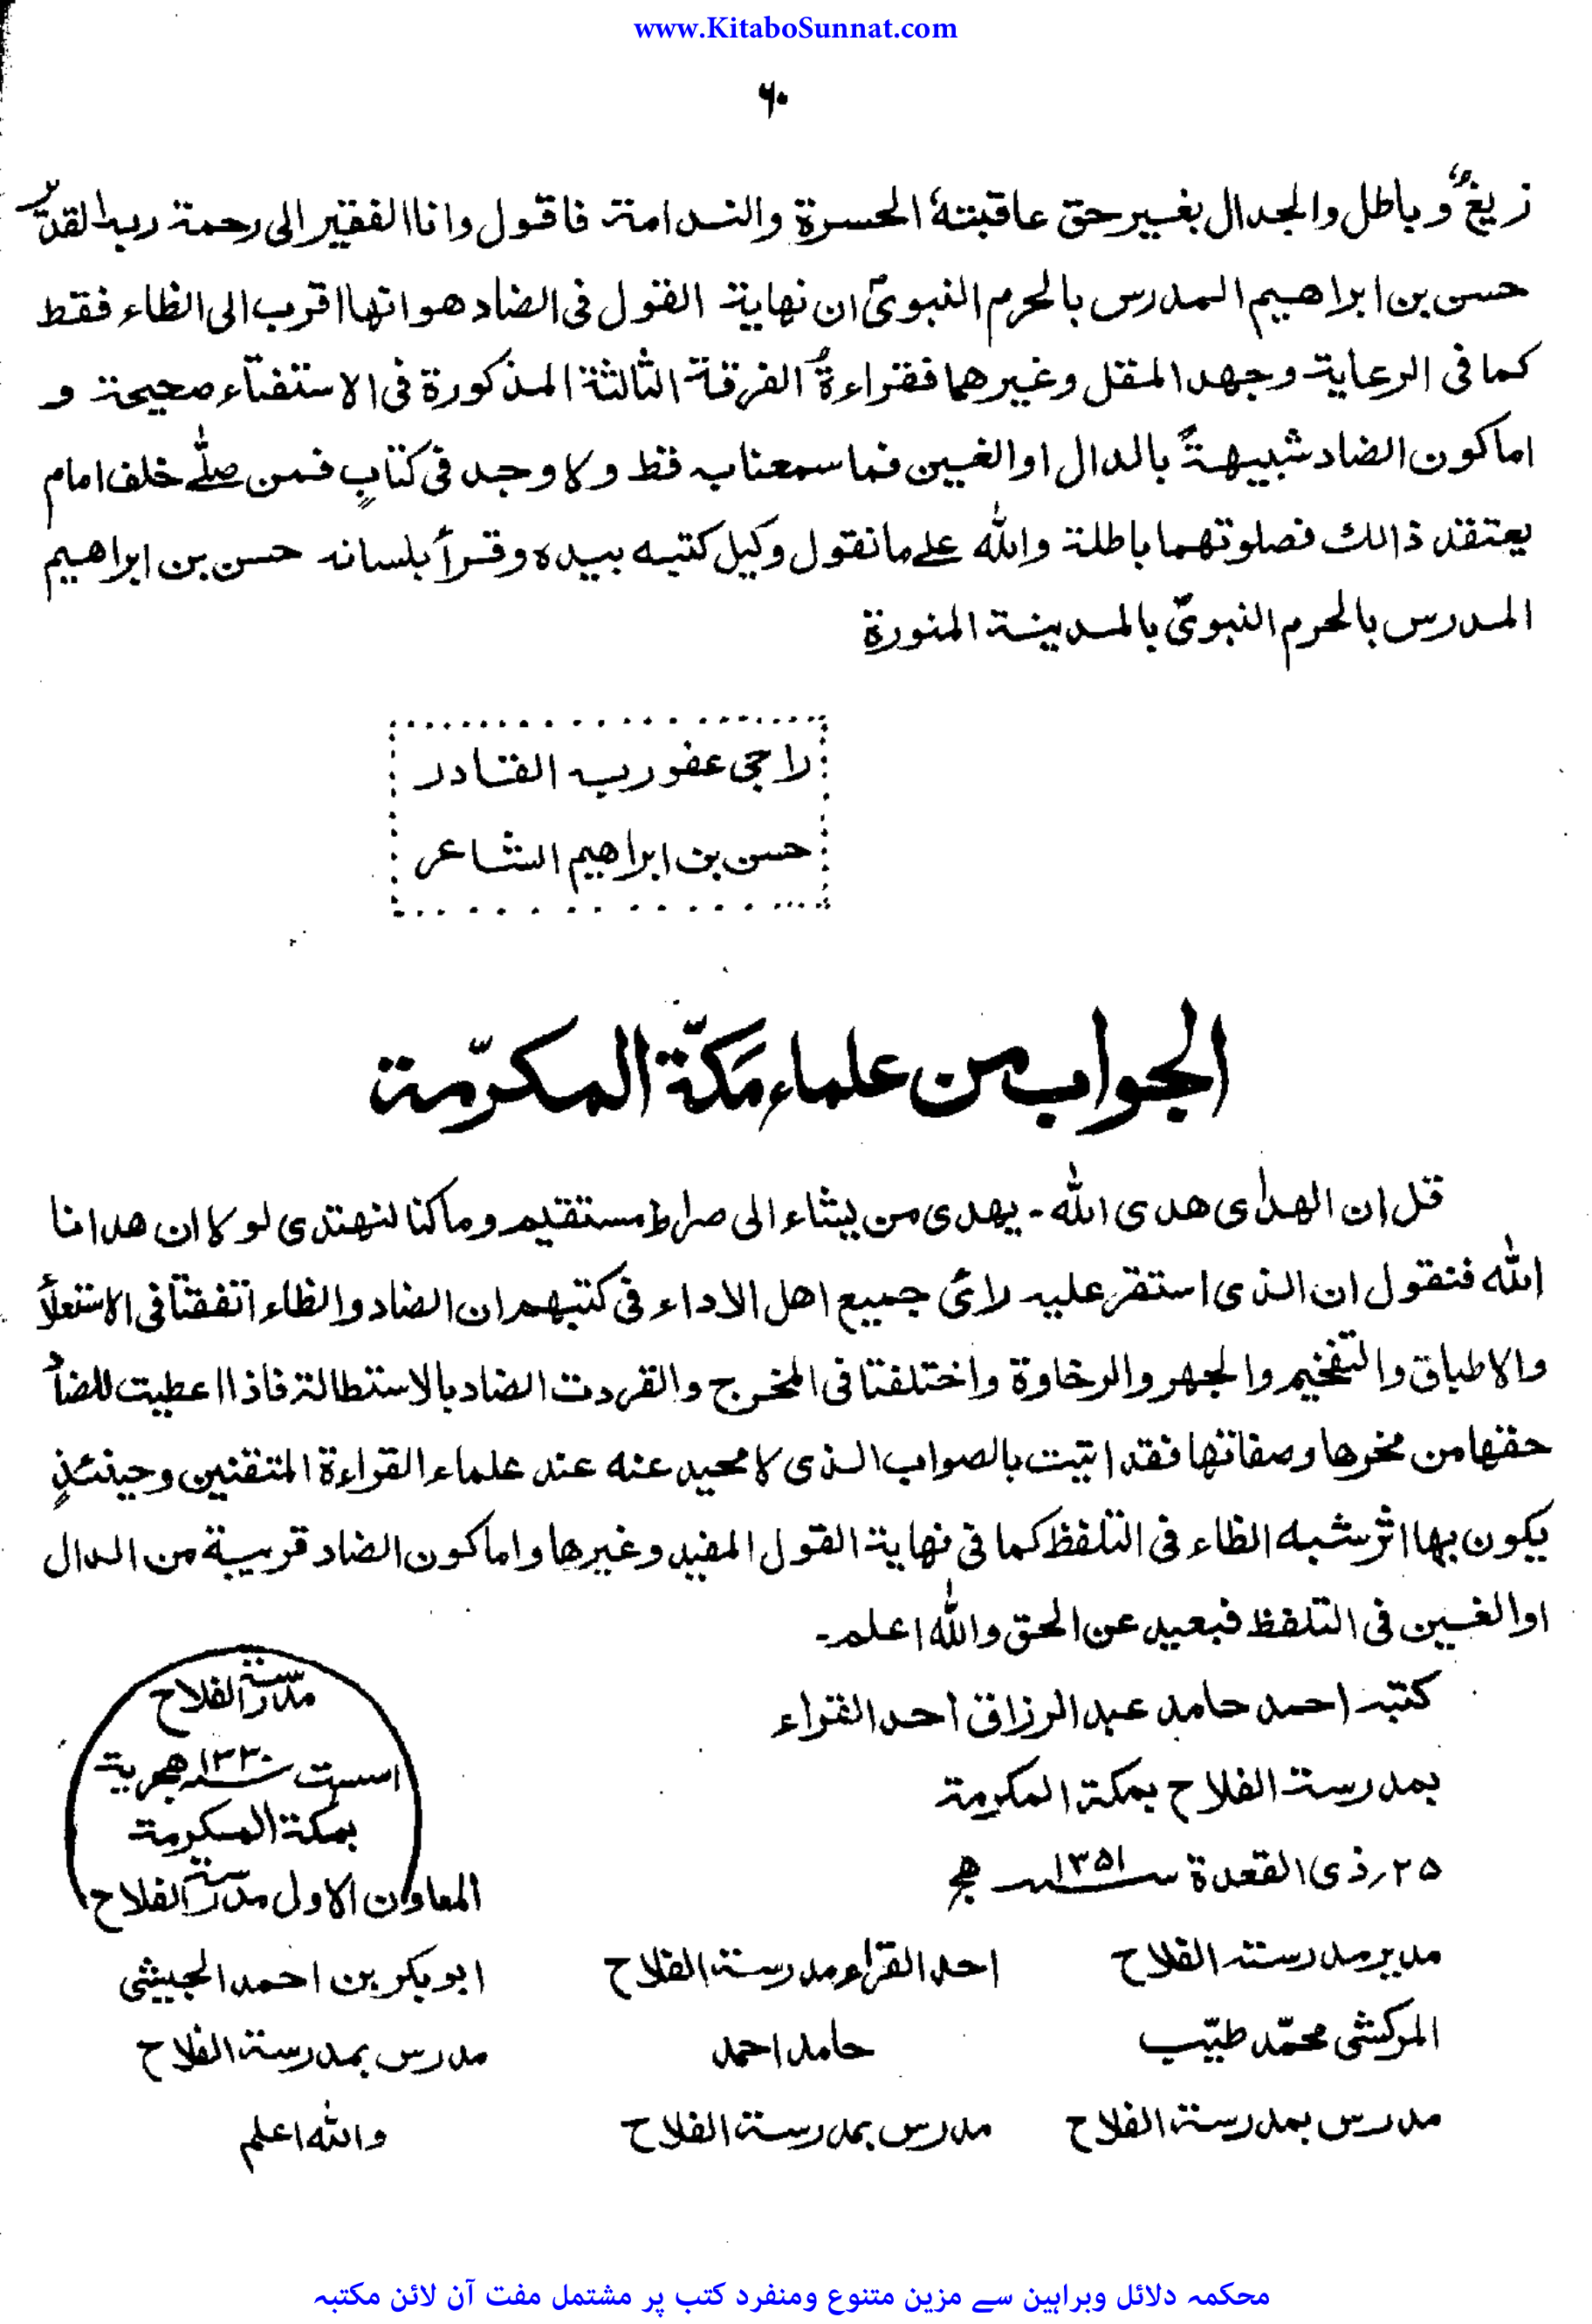 www.KitaboSunnat.com
۶۰
زيغٌ و باطل والجدال بغير حق عاقبتهُ الحسرة والندامة فاقول وانا الفقير الى رحمة ربه القدير
حسن بن ابراهيم المدرس بالحرم النبوىّ ان نهاية القول فى الضاد هو انها اقرب الى الظاء فقط
كما فى الرعاية وجهد المقل وغيرهما فقراءةُ الفرقة الثالثة المذكورة فى الاستفتاء صحيحة و
اما كون الضاد شبيهةً بالدال او الغين فما سمعنا به قط ولا وجد فى كتابٍ فمن صلّے خلف امام
يعتقد ذالك فصلوتهما باطلة والله علے ما نقول وكيل كتبه بيده وقرأ بلسانه حسن بن ابراهيم
المدرس بالحرم النبوىّ بالمدينة المنورة
راجى عفو ربه القادر
حسن بن ابراهيم الشاعر
الجواب من علماء مَكّة المكرّمة
قل ان الهدٰى هدى الله ۔ يهدى من يشاء الى صراط مستقيم وما كنا لنهتدى لو لا ان هدانا
الله فنقول ان الذى استقر عليه رائ جميع اهل الاداء فى كتبهم ان الضاد والظاء اتفقتا فى الاستعلأ
والاطباق والتفخيم والجهر والرخاوة واختلفتا فى المخرج والفردت الضاد بالاستطالة فاذا اعطيت للضاد
حقها من مخرها وصفاتها فقد اتيت بالصواب الذى لا محيد عنه عند علماء القراءة المتقنين وحينئذٍ
يكون بها اثر شبه الظاء فى التلفظ كما فى نهاية القول المفيد وغيرها واما كون الضاد قريبة من الدال
او الغين فى التلفظ فبعيد عن الحق والله اعلم۔
كتبه احمد حامد عبد الرزاق احد القراء
بمدرسة الفلاح بمكة المكرمة
۲۵ ذى القعدة سنہ ۱۳۵۱ هج
مدرسة الفلاح
اسست سنہ ۱۳۳۰ هجرية
بمكة المكرمة
المعاون الاول مدرسة الفلاح
مدير مدرسته الفلاح احد القراء مدرسة الفلاح ابو بكر بن احمد الجبيشى
المركشى محمّد طيّب حامد احمد مدرس بمدرسة الفلاح
مدرس بمدرسة الفلاح مدرس بمدرسة الفلاح والله اعلم
محکمہ دلائل وبراہین سے مزین متنوع ومنفرد کتب پر مشتمل مفت آن لائن مکتبہ